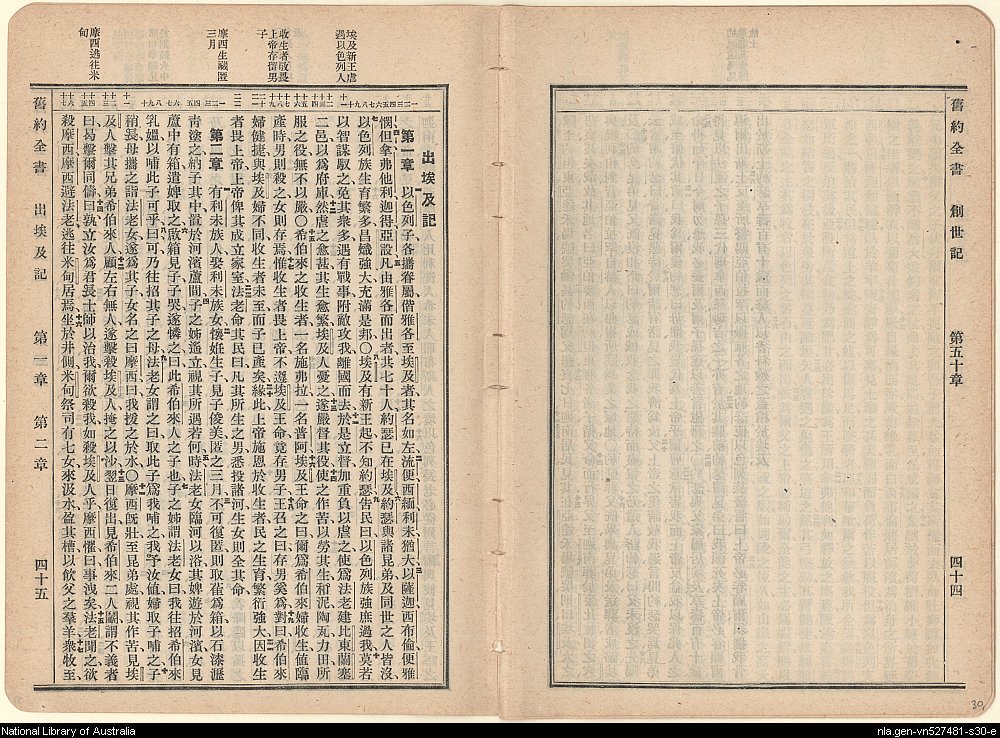 舊約全書 創世記 第五十章 四十四
30
埃及新王虐
遇以色列人
收生者敬畏
上帝存留男
子
摩西生藏匿
三月
摩西逃往米
甸
出埃及記
第一章 以色列子各攜眷屬偕雅各至埃及者其名如左流便西緬利未猶大以薩迦西布倫便雅
憫但拿弗他利迦得亞設凡由雅各而出者其七十人約瑟已在埃及約瑟與諸昆弟及同世之人皆沒
以色列族生育繁多昌熾強大充滿是邦〇埃及有新王起不知約瑟告民曰以色列族強庶過我莫若
以智謀馭之免其衆多遇有戰事附敵攻我離國而去於是立督加重負以虐之使爲法老建比東蘭塞
二邑以爲府庫然虐之愈甚其生愈繁埃及人憂之遂嚴督其役使之作苦以勞其生和泥陶瓦力田所
服之役無不以嚴〇希伯來之收生者一名施弗拉一名普阿埃及王命之曰爾爲希伯來婦收生値臨
產時男則殺之女則存焉惟收生者畏上帝不遵埃及王命竟存男子王召之曰存男奚爲對曰希伯來
婦健捷與埃及婦不同收生者未至而子已產矣緣此上帝施恩於收生者民之生育繁衍強大因收生
者畏上帝上帝俾其成立家室法老命其民曰凡其所生之男悉投諸河生女則全其命
第二章 有利未族人娶利未族女懷妊生子見子俊美匿之三月不可復匿則取萑爲箱以石漆瀝
靑塗之納子其中置於河濱蘆間子之姊遙立視其所遇若何時法老女臨河以浴其婢遊於河濱女見
蘆中有箱遣婢取之啟箱見子子哭遂憐之曰此希伯來人之子也子之姊謂法老女曰我往招希伯來
乳媼以哺此子可乎曰可乃往招其子之母法老女謂之曰取此子爲我哺之我予汝値婦取子哺之子
稍長母攜之詣法老女遂爲其子女名之曰摩西曰我援之於水〇摩西旣壯至昆弟處視其作苦見埃
及人擊其兄弟希伯來人顧左右無人遂擊殺埃及人掩之以沙翌日復出見希伯來二人鬭謂不義者
曰曷擊爾同儔曰孰立汝爲君長士師以治我爾欲殺我如殺埃及人乎摩西懼曰事洩矣法老聞之欲
殺摩西摩西避法老逃往米甸居焉坐於井側米甸祭司有七女來汲水盈其槽以飲父之羣羊衆牧至
舊約全書 出埃及記 第一章 第二章 四十五
National Library of Australia
nla.gen-vn527481-s30-e